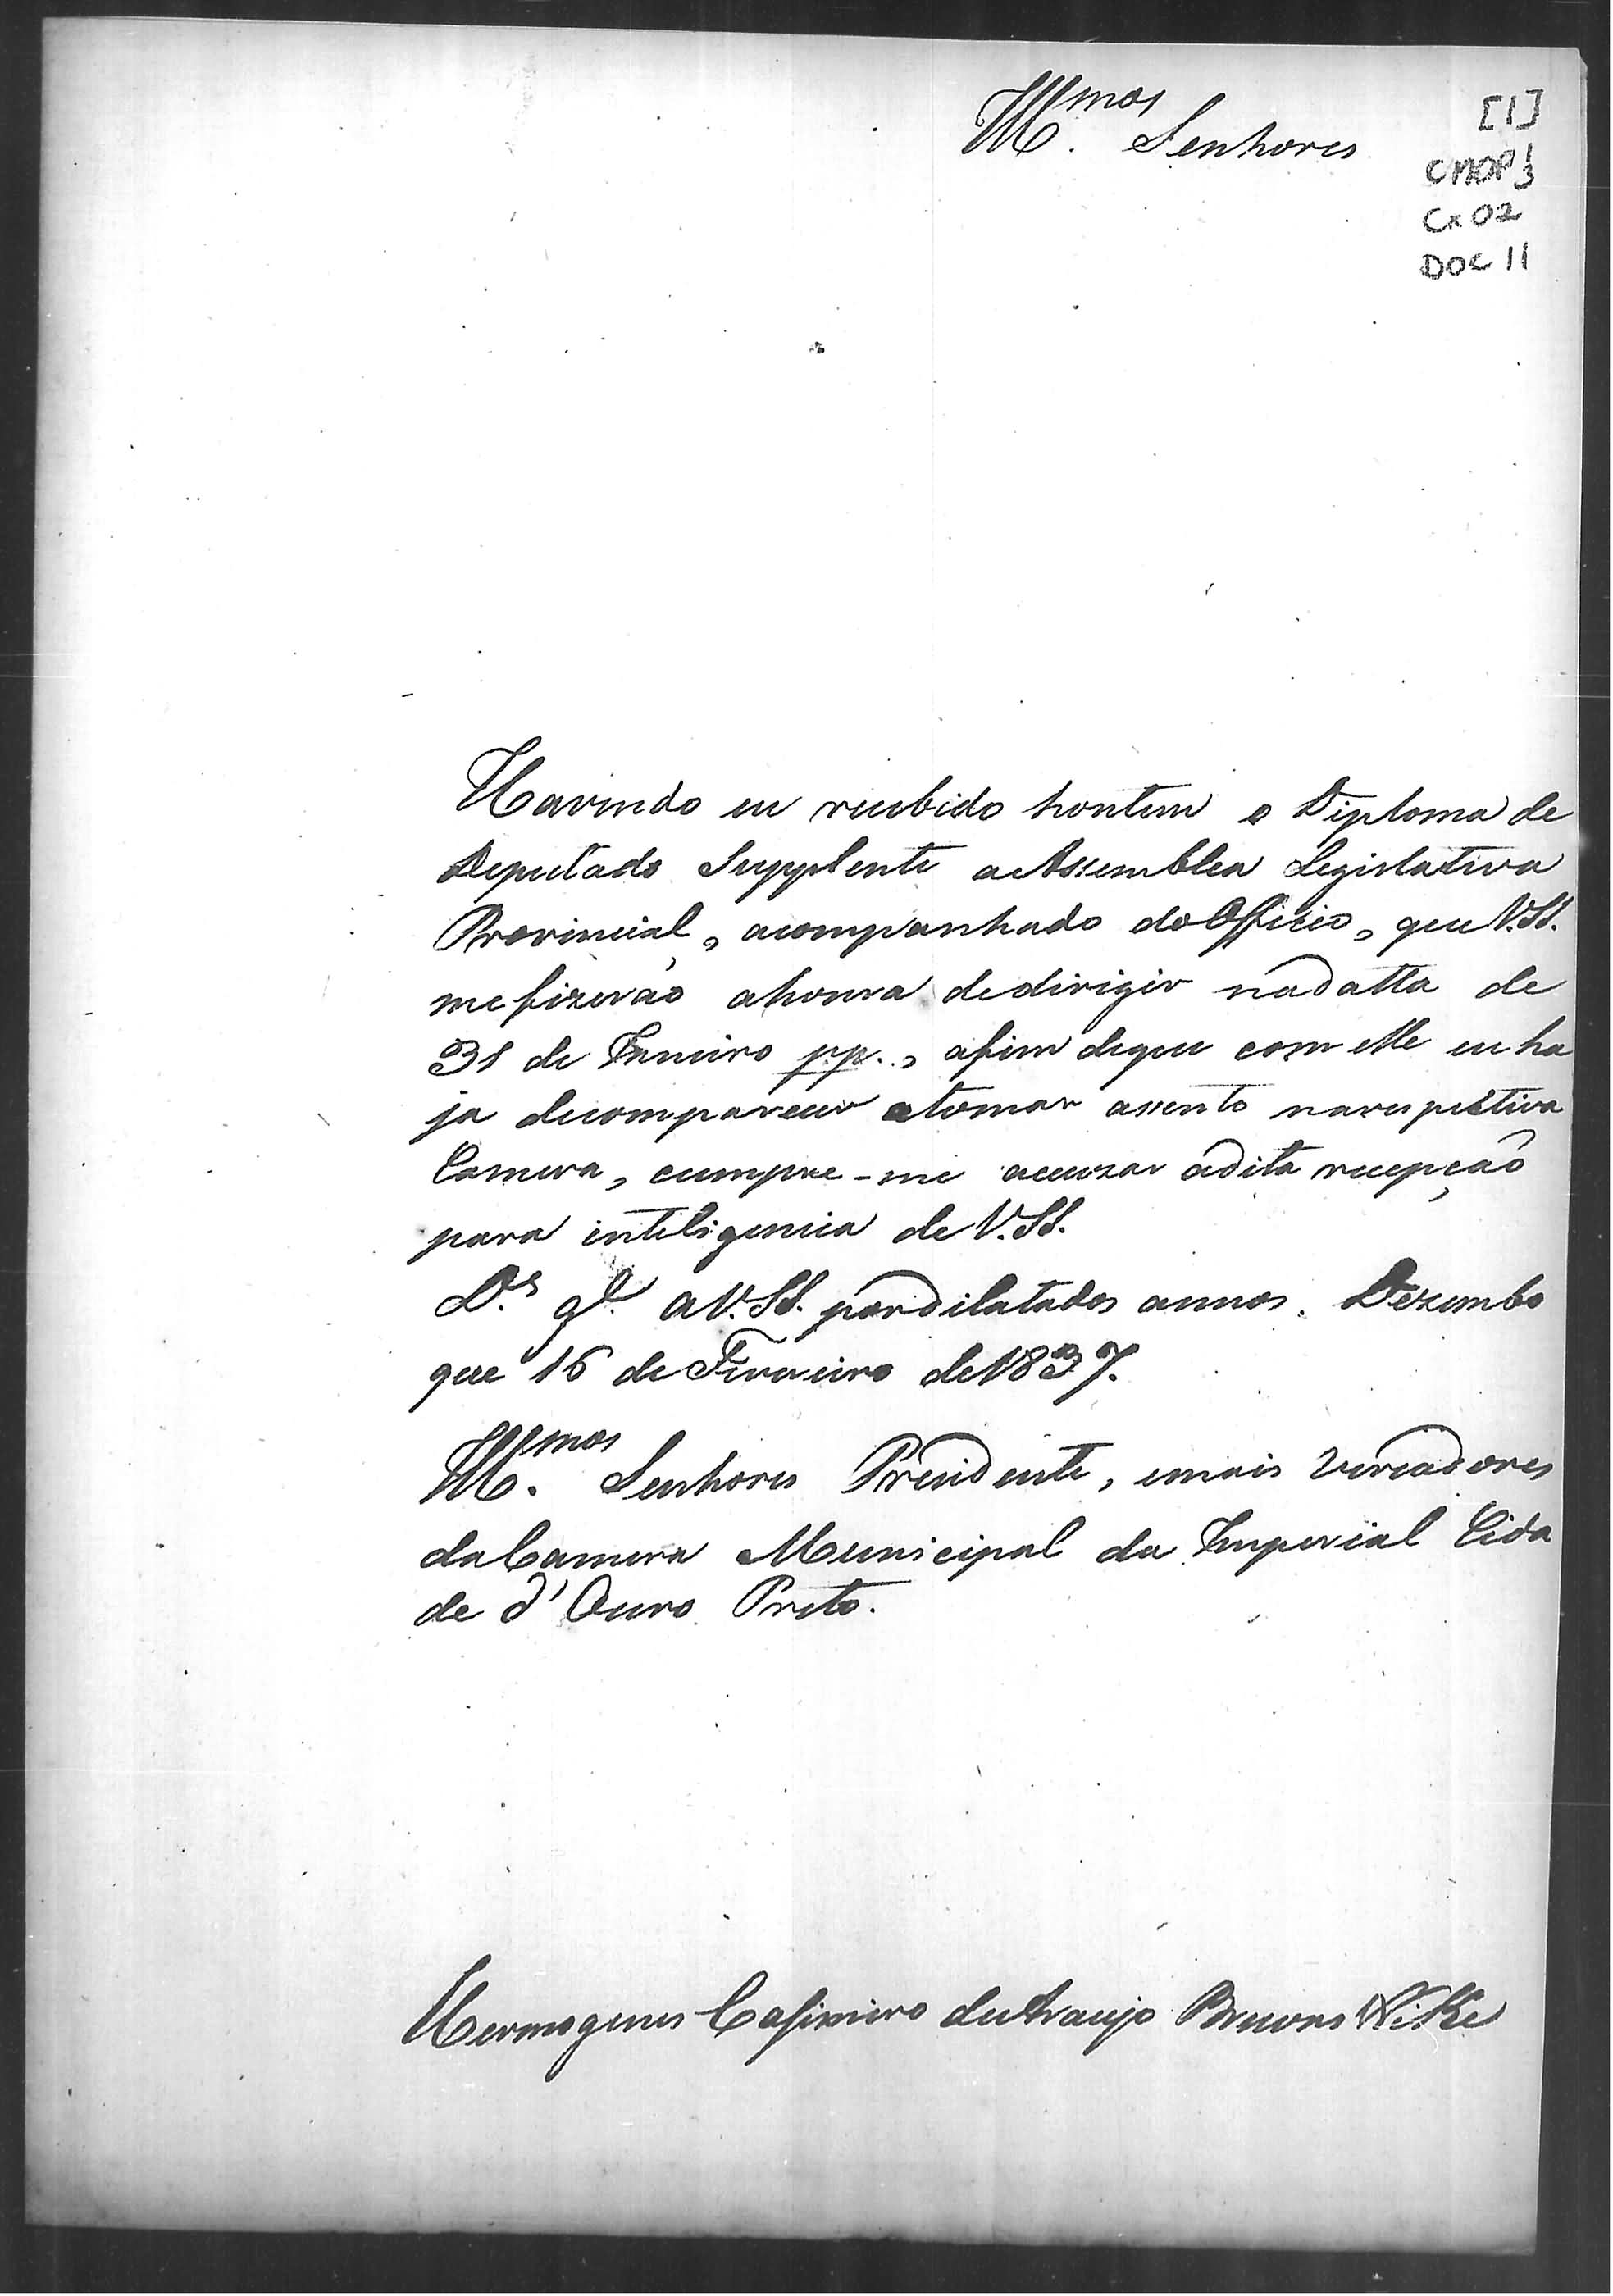 Ill.mos Senhores
[1]
CMOP 1/3
Cx 02
DOC 11
Havendo eu recebido hontem o Diploma de
Deputado Supplente a Assemblea Legislativa
Provincial, acompanhado do Officio, que V.SS.
me fizerão a honra de dirigir na datta de
31 de Janeiro pp., afim de que com elle eu ha
ja de comparecer a tomar assento na respectiva
Camera, cumpre-me accuzar a dita recepção
para inteligencia de V.SS.
D.s g.e a V.SS. por dilatados annos. Dezembo
que 16 de Fevereiro de 1837.
Ill.mos Senhores Presidente, e mais Vereadores
da Camera Municipal da Imperial Cida
de d'Ouro Preto.
Hermogenes Casimiro de Araujo Brunswike